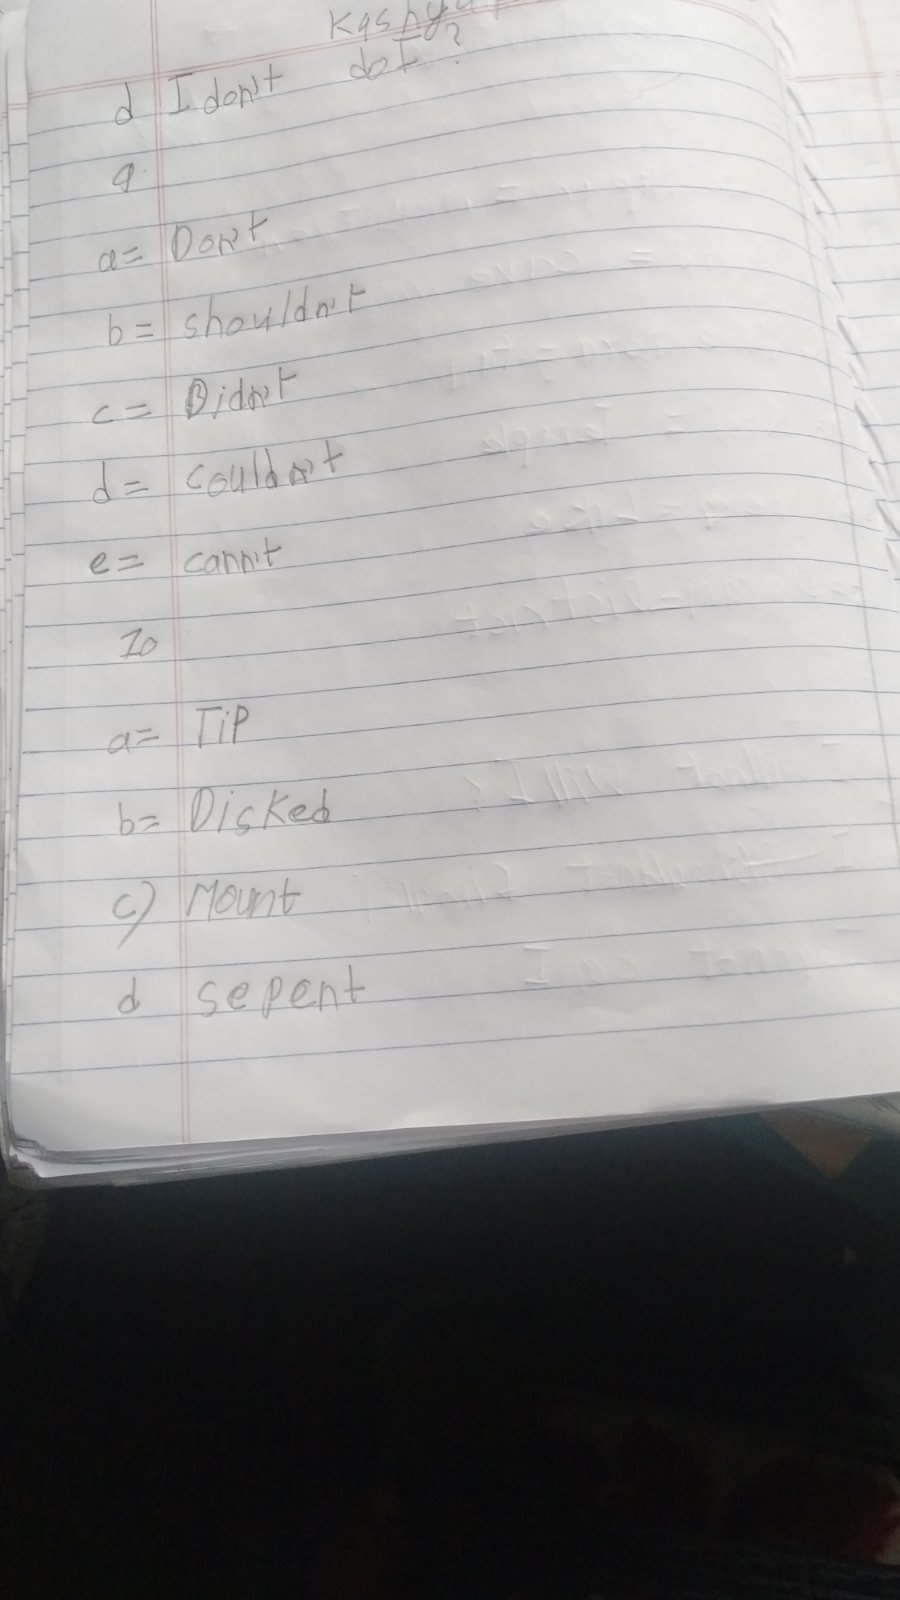 d I don't do I?
9
a= Don't
b= shouldn't
c= Didn't
d= couldn't
e= cann't
10
a= TiP
b= Disked
c) Mount
d sepent